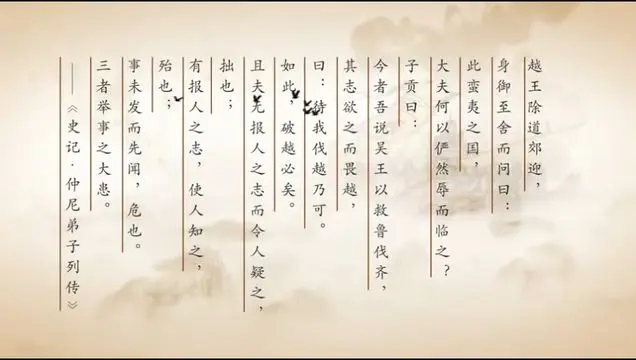 越王除道郊迎，
身御至舍而问曰：
此蛮夷之国，
大夫何以俨然辱而临之？
子贡曰：
今者吾说吴王以救鲁伐齐，
其志欲之而畏越，
曰：待我伐越乃可。
如此，破越必矣。
且夫无报人之志而令人疑之，
拙也；
有报人之志，使人知之，
殆也；
事未发而先闻，危也。
三者举事之大患。
——《史记·仲尼弟子列传》